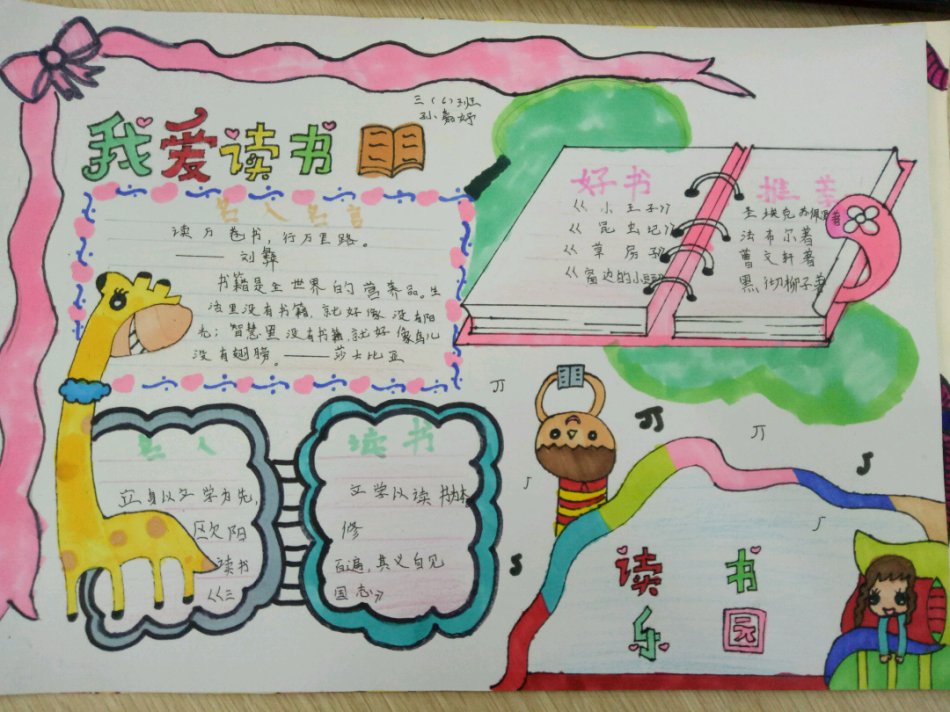 三（6）班
孙嘉妤
我爱读书
名人名言
读万卷书，行万里路。
——刘彝
书籍是全世界的营养品。生
活里没有书籍，就好像没有阳
光；智慧里没有书籍，就好像鸟儿
没有翅膀。——莎士比亚
好书 推荐
《小王子》 圣埃克苏佩里著
《昆虫记》 法布尔著
《草房子》 曹文轩著
《窗边的小豆豆》 黑彻柳子著
名人 读书
立身以立学为先， 立学以读书为本
欧阳 修
读书 百遍，其义自见
《《三 国志》
读书
乐园